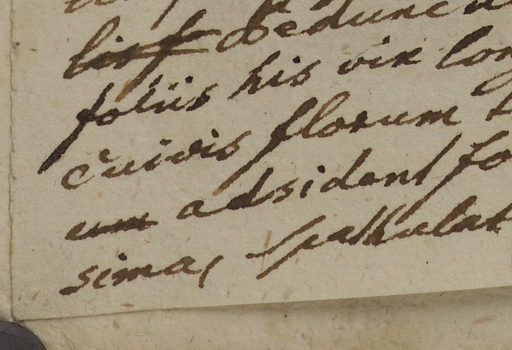 pedunc
foliis his vix lon
cuivis florum
adsident fo
sima, spathulat